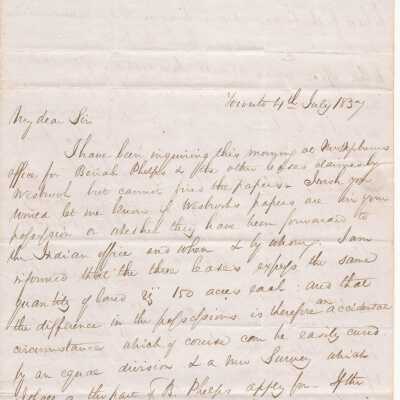 Toronto 4th July 1837
My dear Sir
I have been inquiring this morning at
office for Beriah Phelps & the other leases claimed by
Westbrook but cannot find the papers I wish you
would let me know if Westbrook's papers are in your
possession or whether they have been forwarded to
the Indian office and when & by whom. I am
informed that the three leases express the same
quantity of land viz 150 acres each and that
the difference in the possessions is therefore an accidental
circumstance which of course can be easily cured
by an equal division & a new Survey which
the part of B. Phelps apply for. If the